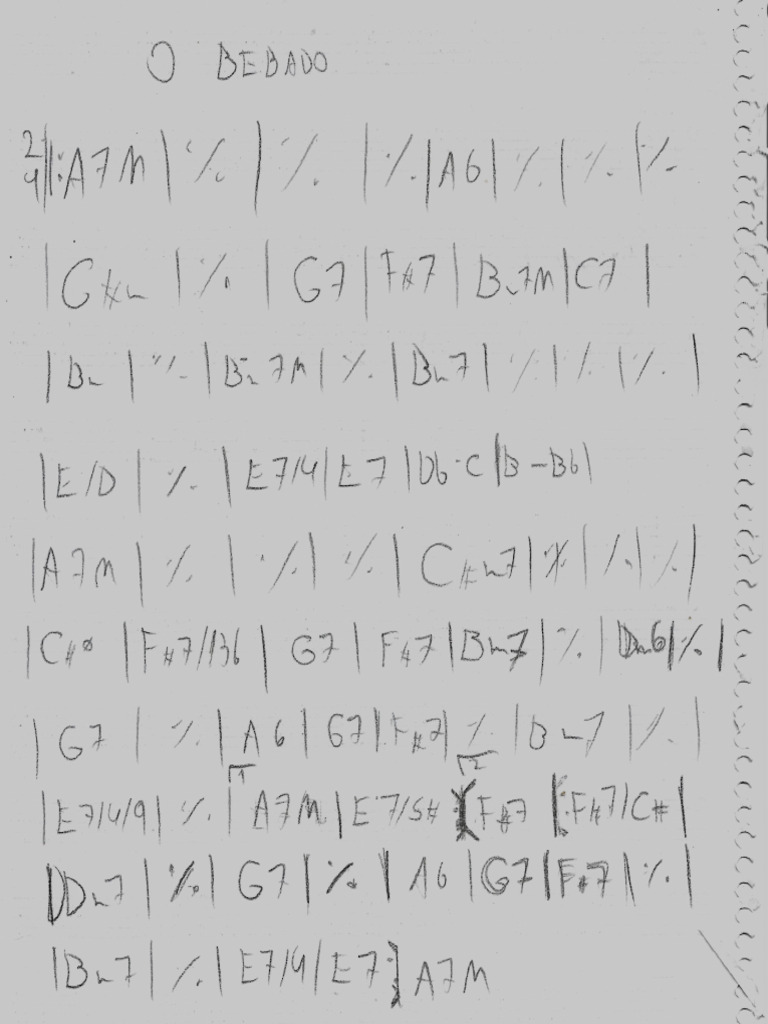 O BEBADO
2/4 ‖: A7M | ٪ | ٪ | ٪ | A6 | ٪ | ٪ | ٪
| G#m | ٪ | G7 | F#7 | Bm7M | C7 |
| Bm | ٪ | Bm7M | ٪ | Bm7 | ٪ | ٪ | ٪ |
| E/D | ٪ | E7/4 | E7 | Db·C | B-Bb |
| A7M | ٪ | ٪ | ٪ | C#m7 | ٪ | ٪ | ٪ |
| C#ø | F#7/13b | G7 | F#7 | Bm7 | ٪ | Dm6 | ٪ |
| G7 | ٪ | A6 | G7 | F#7 | ٪ | Bm7 | ٪ |
1 2
| E7/4/9 | ٪ | A7M | E7/5# :| F#7 |: F#7/C# |
Dm7 | ٪ | G7 | ٪ | A6 | G7 | F#7 | ٪ |
| Bm7 | ٪ | E7/4 | E7 :| A7M